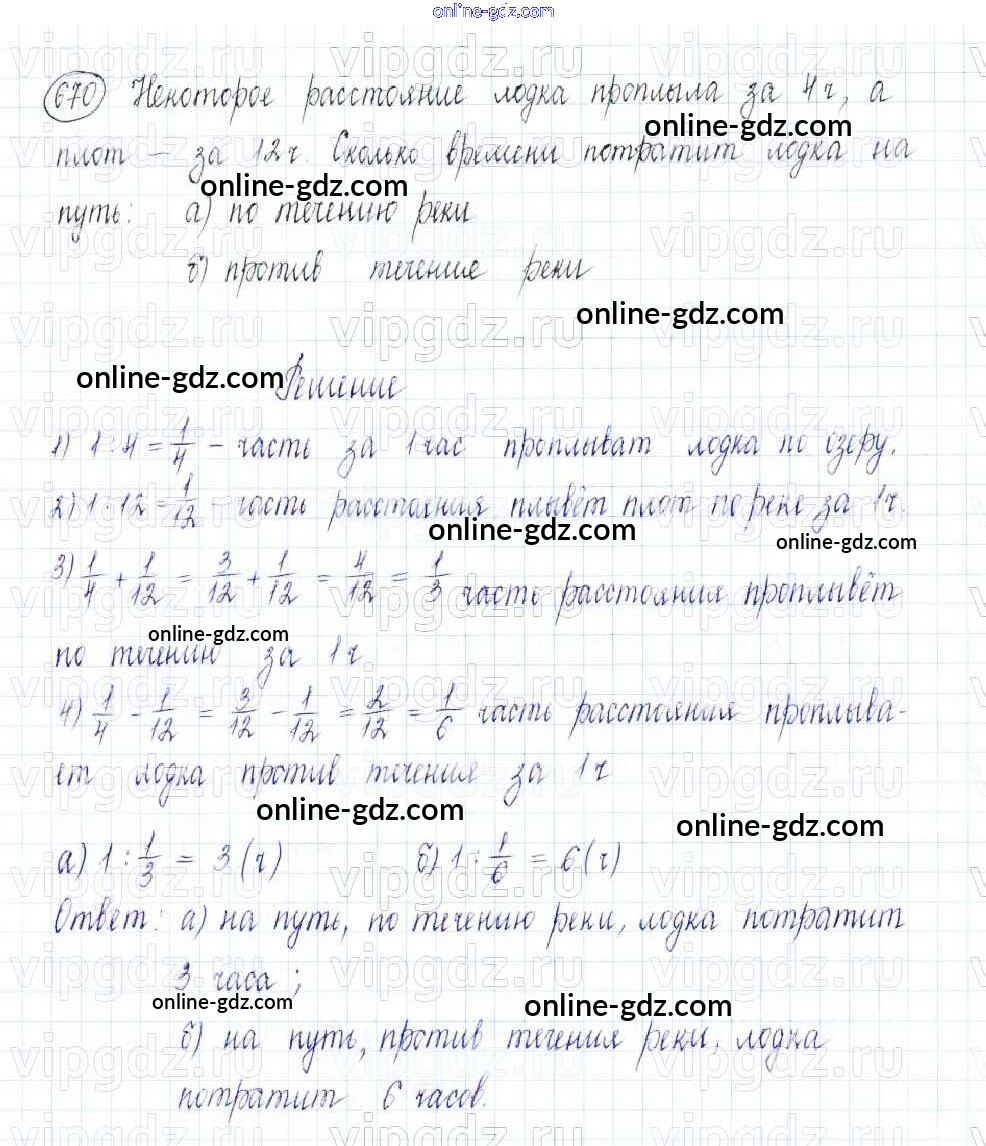 online-gdz.com
670 Некоторое расстояние лодка проплыла за 4 ч, а
online-gdz.com
плот – за 12 ч. Сколько времени потратит лодка на
online-gdz.com
путь: а) по течению реки
б) против течение реки
online-gdz.com
online-gdz.com Решение
1) 1 : 4 = 1/4 – часть за 1 час проплыват лодка по озеру.
2) 1 : 12 = 1/12 – часть расстояния плывёт плот по реке за 1 ч.
online-gdz.com
online-gdz.com
3) 1/4 + 1/12 = 3/12 + 1/12 = 4/12 = 1/3 часть расстояния проплывёт
online-gdz.com
по течению за 1 ч
4) 1/4 - 1/12 = 3/12 - 1/12 = 2/12 = 1/6 часть расстояния проплыва-
ет лодка против течения за 1 ч
online-gdz.com
online-gdz.com
а) 1 : 1/3 = 3 (ч) б) 1 : 1/6 = 6 (ч)
Ответ: а) на путь, по течению реки, лодка потратит
3 часа ;
online-gdz.com
online-gdz.com
б) на путь, против течения реки, лодка
потратит 6 часов.